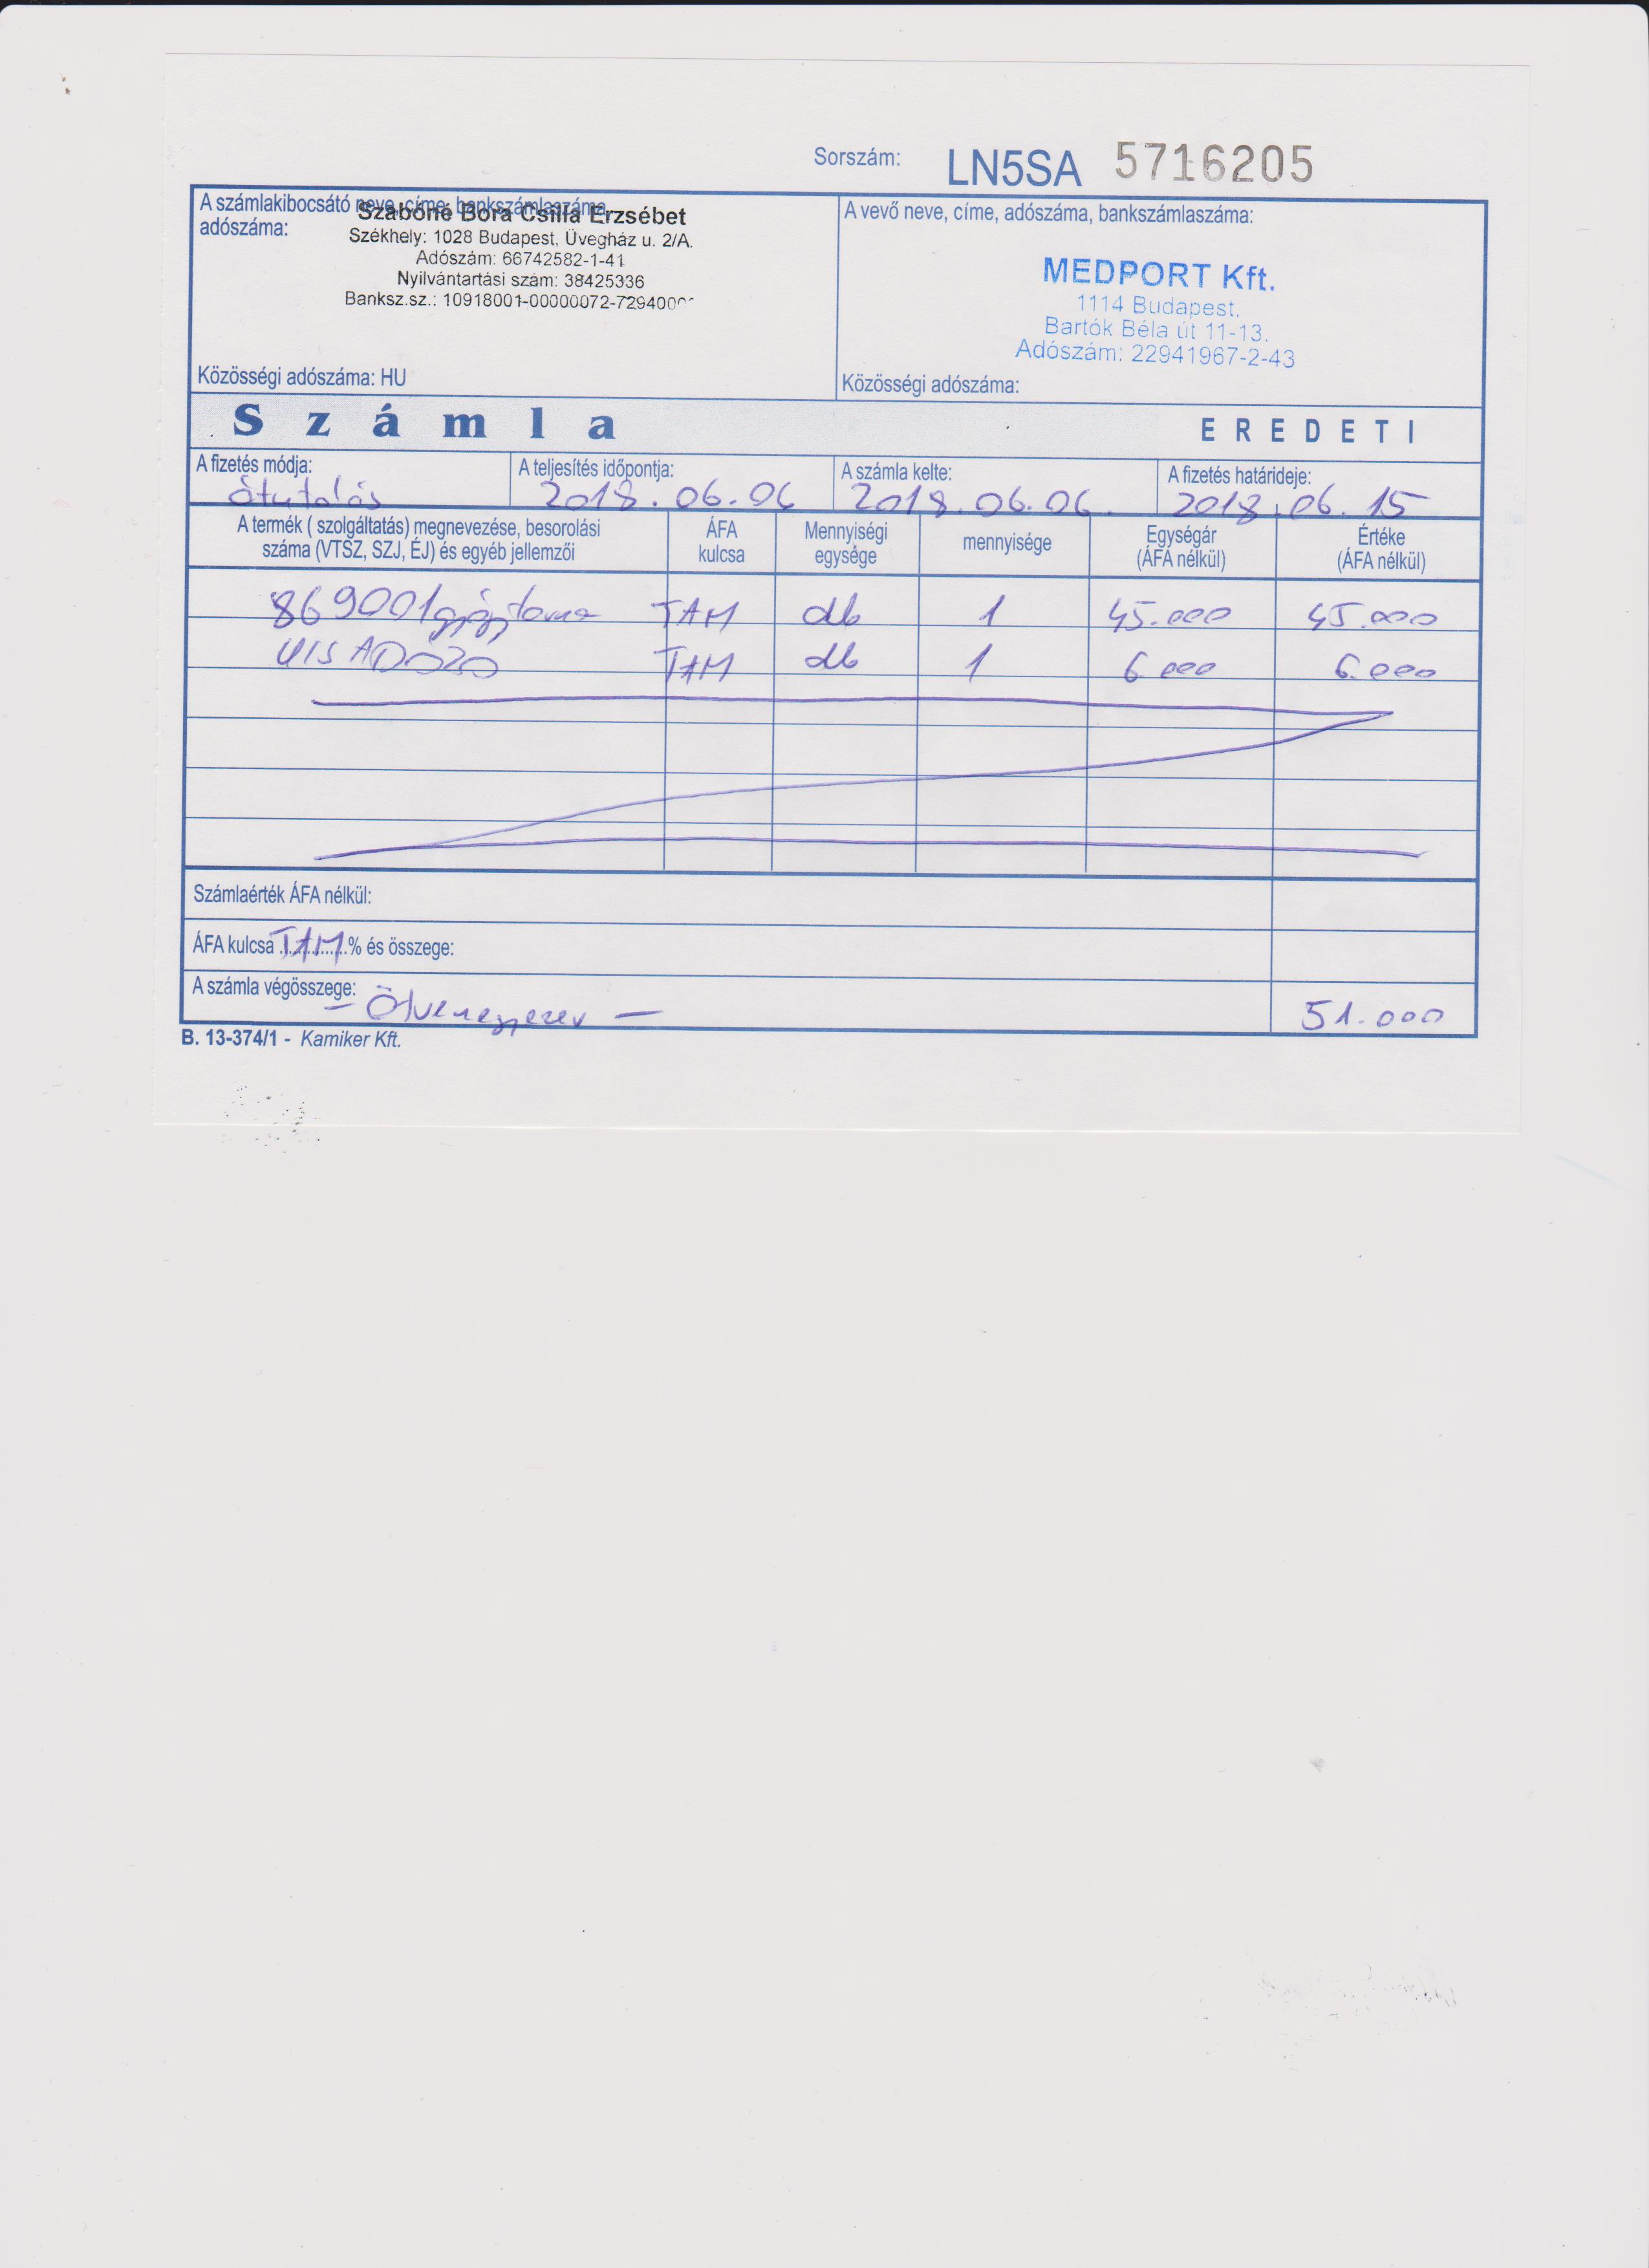 Sorszám: LN5SA 5716205
A számlakibocsátó neve, címe, bankszámlaszáma,
adószáma:
Szabóné Bora Csilla Erzsébet
Székhely: 1028 Budapest, Üvegház u. 2/A.
Adószám: 66742582-1-41
Nyilvántartási szám: 38425336
Banksz.sz.: 10918001-00000072-7294000
Közösségi adószáma: HU
A vevő neve, címe, adószáma, bankszámlaszáma:
MEDPORT Kft.
1114 Budapest,
Bartók Béla út 11-13.
Adószám: 22941967-2-43
Közösségi adószáma:
Számla EREDETI
A fizetés módja: A teljesítés időpontja: A számla kelte: A fizetés határideje:
átutalás 2018.06.06 2018.06.06. 2018.06.15
A termék ( szolgáltatás) megnevezése, besorolási
száma (VTSZ, SZJ, ÉJ) és egyéb jellemzői
ÁFA
kulcsa
Mennyiségi
egysége
mennyisége
Egységár
(ÁFA nélkül)
Értéke
(ÁFA nélkül)
869001 gyógytorna TAM db 1 45.000 45.000
TAM db 1 6.000 6.000
Számlaérték ÁFA nélkül:
ÁFA kulcsa TAM % és összege:
A számla végösszege: - Ötvenegyezer - 51.000
B. 13-374/1 - Kamiker Kft.